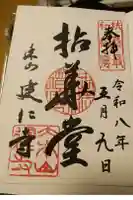 奉拝
令和八年
五月九日
拈華堂
東山
建仁寺